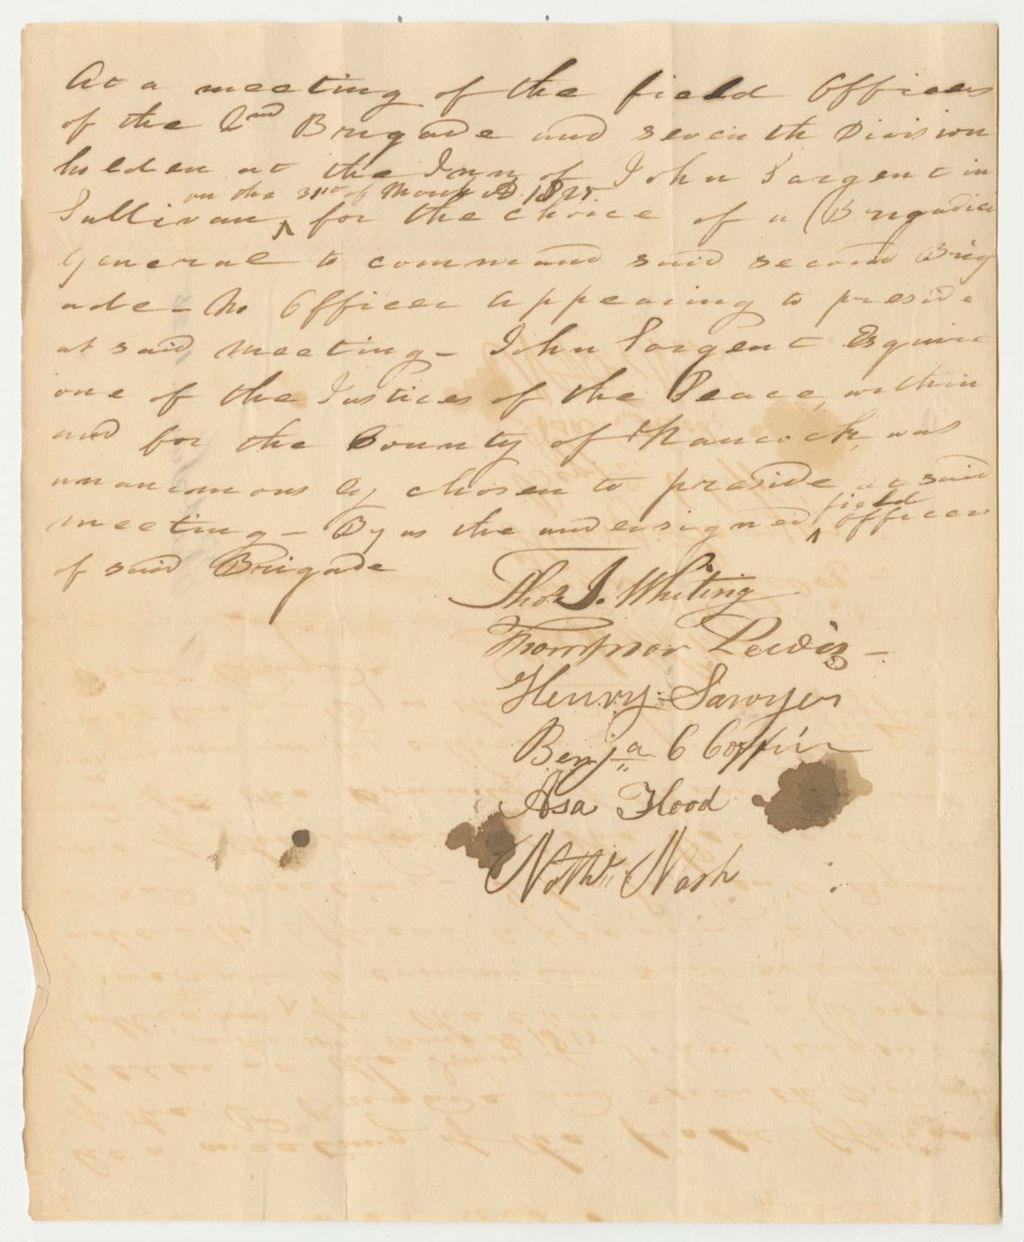 At a meeting of the field Officers
of the 2nd Brigade and seventh Division
holden at the Inn of John Sargent in
on the 31st of March AD
Sullivan ^ for the choice of a Brigadier
General to command said second Brig
ade - No Officer appearing to preside
at said meeting - John Sargent Esquire
one of the Justices of the Peace, within
and for the County of Hancock, was
unanimously chosen to preside at said
field
meeting - By us the undersigned ^ officers
of said Brigade
Thos J. Whiting
Thompson Lewis -
Henry Sawyer
Benja C Coffin
Asa Flood
Nathl Nash